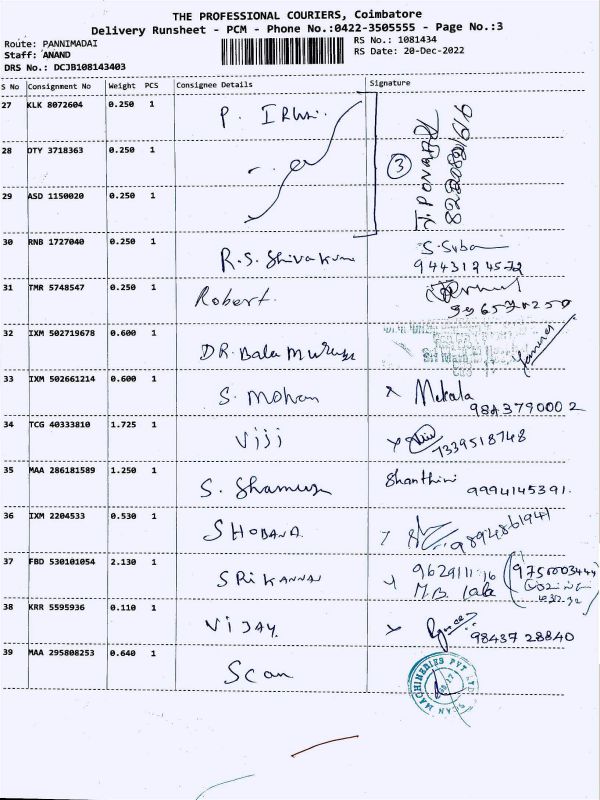 THE PROFESSIONAL COURIERS, Coimbatore
Delivery Runsheet - PCM - Phone No.:0422-3505555 - Page No.:3
Route: PANNIMADAI
RS No.: 1081434
Staff: ANAND
RS Date: 20-Dec-2022
DRS No.: DCJB108143403
S No Consignment No Weight PCS Consignee Details Signature
27 KLK 8072604 0.250 1 P.
28 DTY 3718363 0.250 1
3
29 ASD 1150020 0.250 1
30 RNB 1727040 0.250 1 R.S. S. Suba
9443124572
31 TMR 5748547 0.250 1 Robert.
32 IXM 502719678 0.600 1 DR. Bala
33 IXM 502661214 0.600 1 S. Mohan Mekala
9843790002
34 TCG 40333810 1.725 1 Viji
7339518748
35 MAA 286181589 1.250 1 S. Shanthini
9994145391.
36 IXM 2204533 0.530 1 SHOBANA. 9894861941
37 FBD 530101054 2.130 1 SRI KANNAN
M.B. Lala
38 KRR 5595936 0.110 1 VIJAY.
98437 28840
39 MAA 295808253 0.640 1 Scan
SCAN MACHINERIES PVT LTD